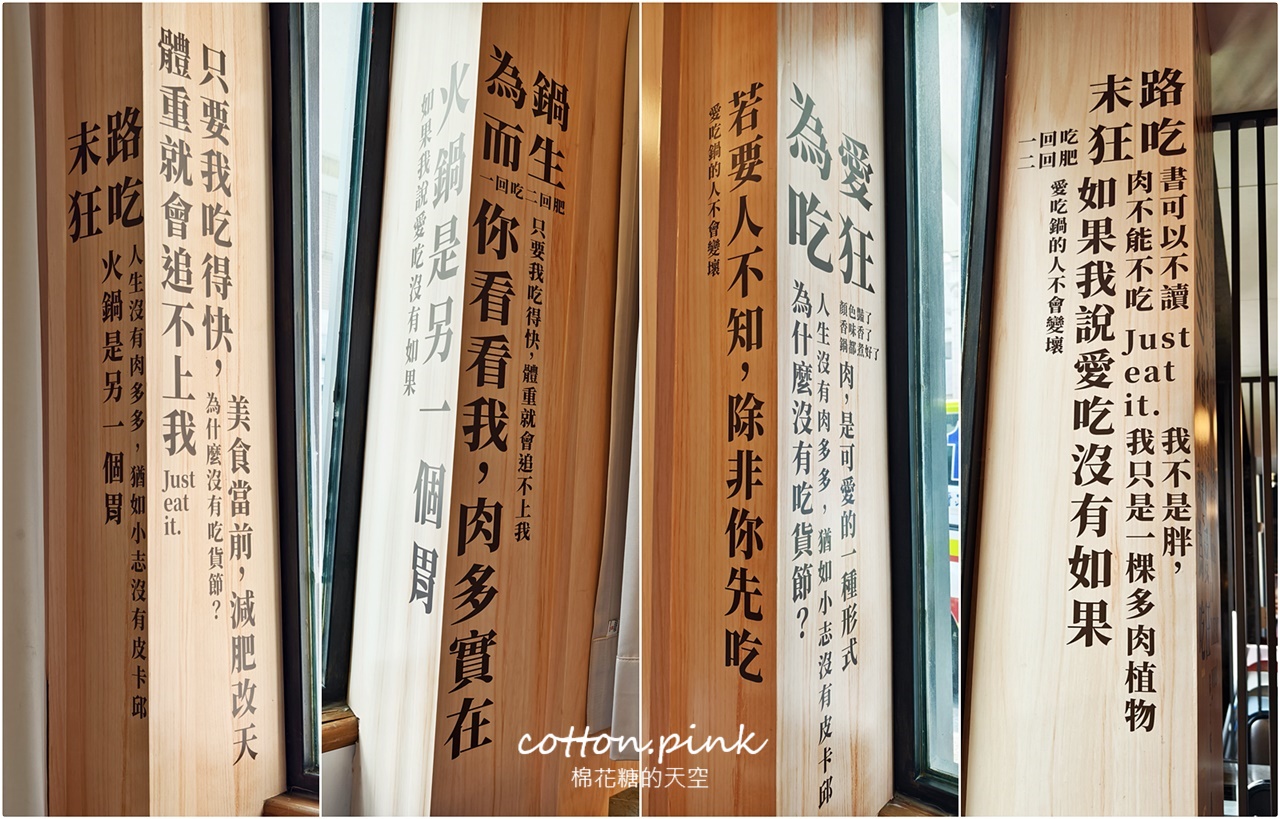 美食當前，減肥改天
只要我吃得快，
為什麼沒有吃貨節？
體重就會追不上我
Just
eat
it.
路吃
末狂
人生沒有肉多多，猶如小志沒有皮卡邱
火鍋是另一個胃
鍋生
為而
一回吃二回肥
只要我吃得快，體重就會追不上我
你看看我，肉多實在
火鍋是另一個胃
如果我說愛吃沒有如果
愛狂
為吃
顏色豔了
香味香了
鍋都煮好了
肉，是可愛的一種形式
人生沒有肉多多，猶如小志沒有皮卡邱
為什麼沒有吃貨節？
若要人不知，除非你先吃
愛吃鍋的人不會變壞
路吃
末狂
書可以不讀
肉不能不吃
Just
eat
it.
我不是胖，
我只是一棵多肉植物
吃肥
一回
二回
如果我說愛吃沒有如果
愛吃鍋的人不會變壞
cotton.pink
棉花糖的天空